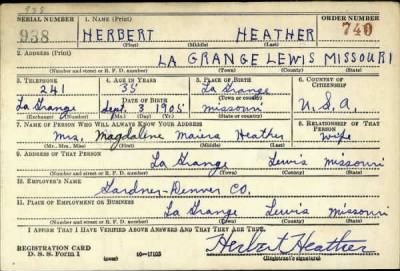 938
SERIAL NUMBER 1. NAME (Print) ORDER NUMBER
938 HERBERT HEATHER 740
(First) (Middle) (Last)
2. ADDRESS (Print)
LA GRANGE LEWIS MISSOURI
(Number and street or R. F. D. number) (Town) (County) (State)
3. TELEPHONE 4. AGE IN YEARS 5. PLACE OF BIRTH 6. COUNTRY OF CITIZENSHIP
241 35 La Grange
(Town or county)
La Grange DATE OF BIRTH Sept. 3 1905 Missouri U.S.A.
(Exchange) (Number) (Mo.) (Day) (Yr.) (State or country)
7. NAME OF PERSON WHO WILL ALWAYS KNOW YOUR ADDRESS 8. RELATIONSHIP OF THAT PERSON
Mrs. Magdalene Maiers Heather Wife
(Mr., Mrs., Miss) (First) (Middle) (Last)
9. ADDRESS OF THAT PERSON
La Grange Lewis Missouri
(Number and street or R. F. D. number) (Town) (County) (State)
10. EMPLOYER'S NAME
Gardner-Denver Co.
11. PLACE OF EMPLOYMENT OR BUSINESS
La Grange Lewis Missouri
(Number and street or R. F. D. number) (Town) (County) (State)
I AFFIRM THAT I HAVE VERIFIED ABOVE ANSWERS AND THAT THEY ARE TRUE.
REGISTRATION CARD
D. S. S. Form 1 Herbert Heather
(Registrant's signature)